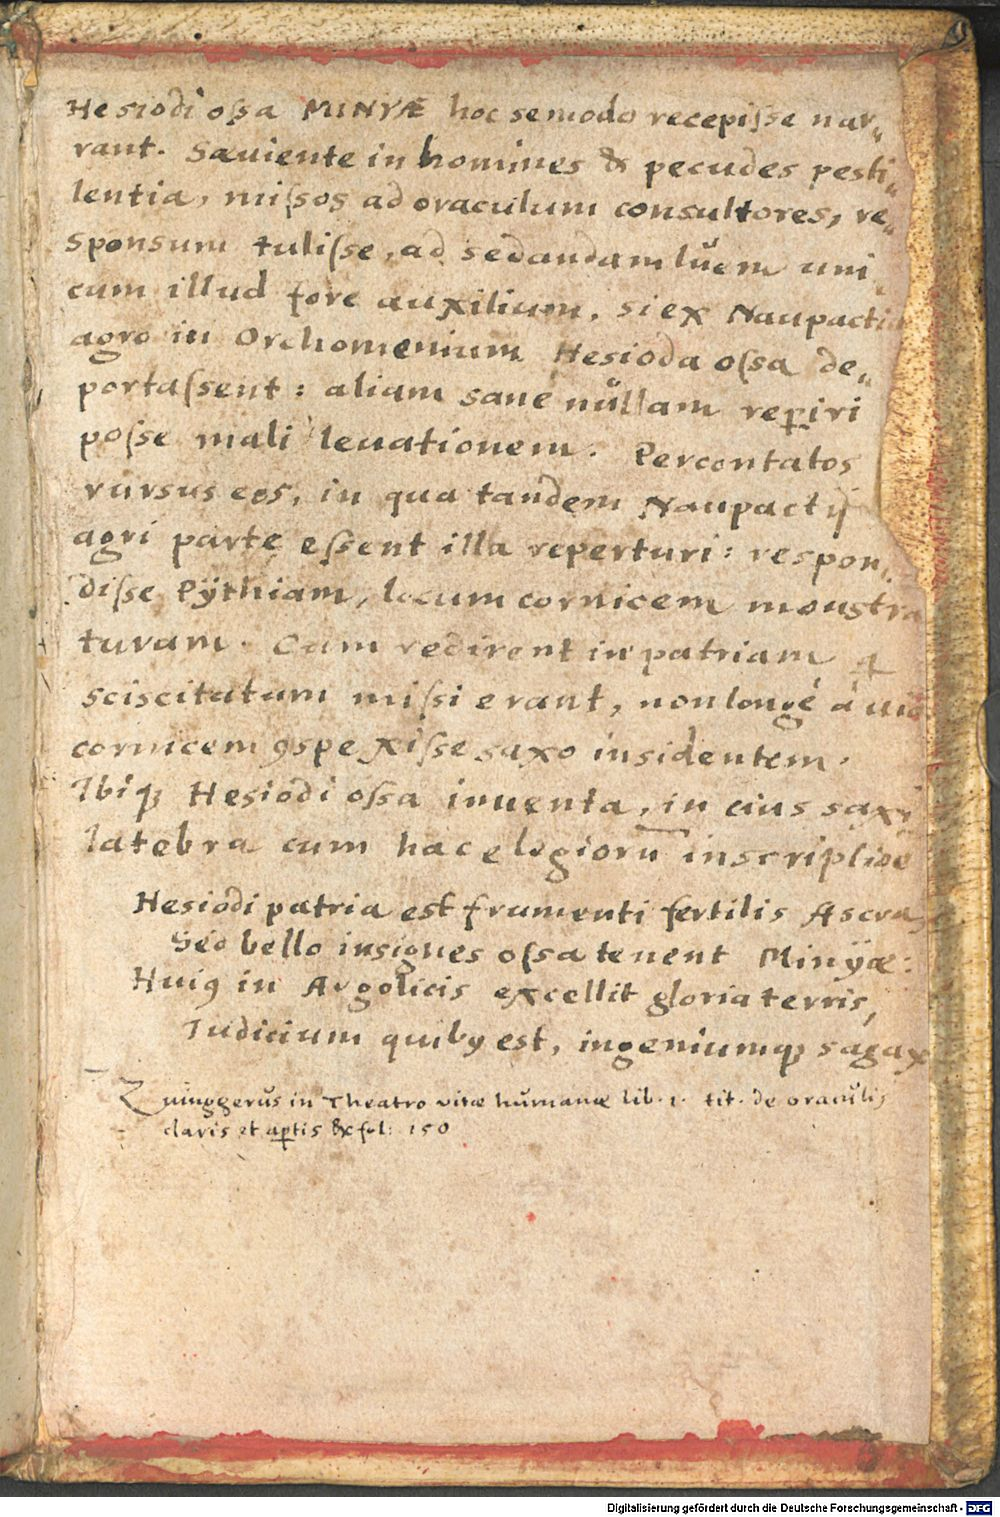 Hesiodi ossa MINYÆ hoc se modo recepisse nar„
rant. Sæuiente in homines & pecudes pesti„
lentia, missos ad oraculum consultores, re„
sponsum tulisse, ad sedandam lŭem uni„
cum illud fore auxilium, si ex Naupactio
agro in Orchomenium Hesioda ossa de„
portassent: aliam sane nŭllam reperiri
posse mali leuationem. Percontatos
rursus eos, in qua tandem Naupactij
agri parte essent illa reperturi: respon„
disse Pÿthiam, locum cornicem monstra
turam. Cum redirent in patriam q
sciscitatum missi erant, non longè à uia
cornicem 9spexisse saxo insidentem.
Ibiq; Hesiodi ossa inuenta, in eius saxi
latebra cum hac elegiorū inscriptioe
Hesiodi patria est frumenti fertilis Ascra,
Sed bello insignes ossa tenent Minÿæ:
Hui9 in Argolicis excellit gloria terris,
Iudicium quib9 est, ingeniumq; sagax
Zuinggerŭs in Theatro vitæ hŭmanæ lib. 1. tit. de oracŭlis
claris et aptis &c fol: 150
Digitalisierung gefördert durch die Deutsche Forschungsgemeinschaft - DFG